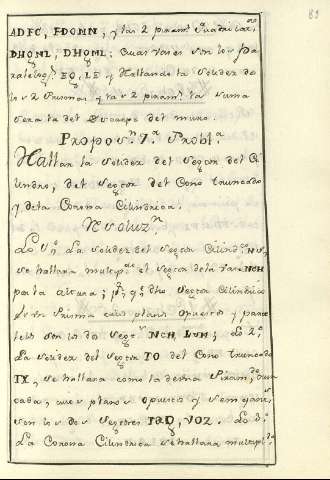 89
ADFC, FDOMN, y las 2 piram.s Quadrilat.s
DHQNL, DHQML: cuas vases son los Pa
ralelog.s EQ, LE y Hallando la solidez de
los 2 Prismas y las 2 piram.s la suma
sera la del Descarpe del muro.
Propos.n 7.a Probl.a
Hallar la solidez del Sector del Ci
lindro, del Sector del Cono truncado
y de la Corona Cilindrica.
Resoluz.n
Lo 1.o La solidez del Sector Cilind.co NV,
se hallara multip.do el Sector de la vase NCH
por la altura; p.r q.e dho Sector Cilindrico
es un Prisma cuios planos opuestos y para
lelos son los dos Sect.s NCH, LVH; Lo 2.o
La solidez del Sector TO del Cono truncado
TX, se hallara como la de una Piram.de trun
cada, cuios planos opuestos y semejantes,
son los dos Sectores TQD, VOZ. Lo 3.o
La Corona Cilindrica se hallara multipl.do